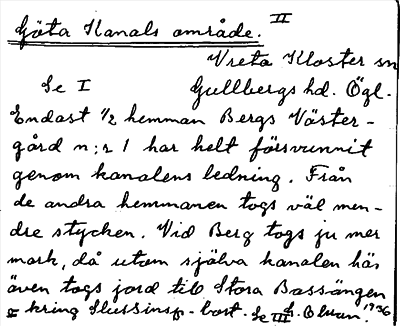 Göta Kanals område. II
Vreta Kloster sn
Se I Gullbergs hd. Ögl.
Endast 1/2 hemman Bergs Väster-
gård n:r 1 har helt försvunnit
genom kanalens ledning. Från
de andra hemmanen togs väl min-
dre stycken. Vid Berg togs ju mer
mark, då utom själva kanalen här
även togs jord till Stora Bassängen
o kring Slussinsp-bost. Se III 1936